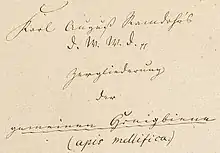 Karl August Ramdohr's
d. W. W. d.
Zergliederung
der
gemeinen Honigbiene
(apis mellifica)